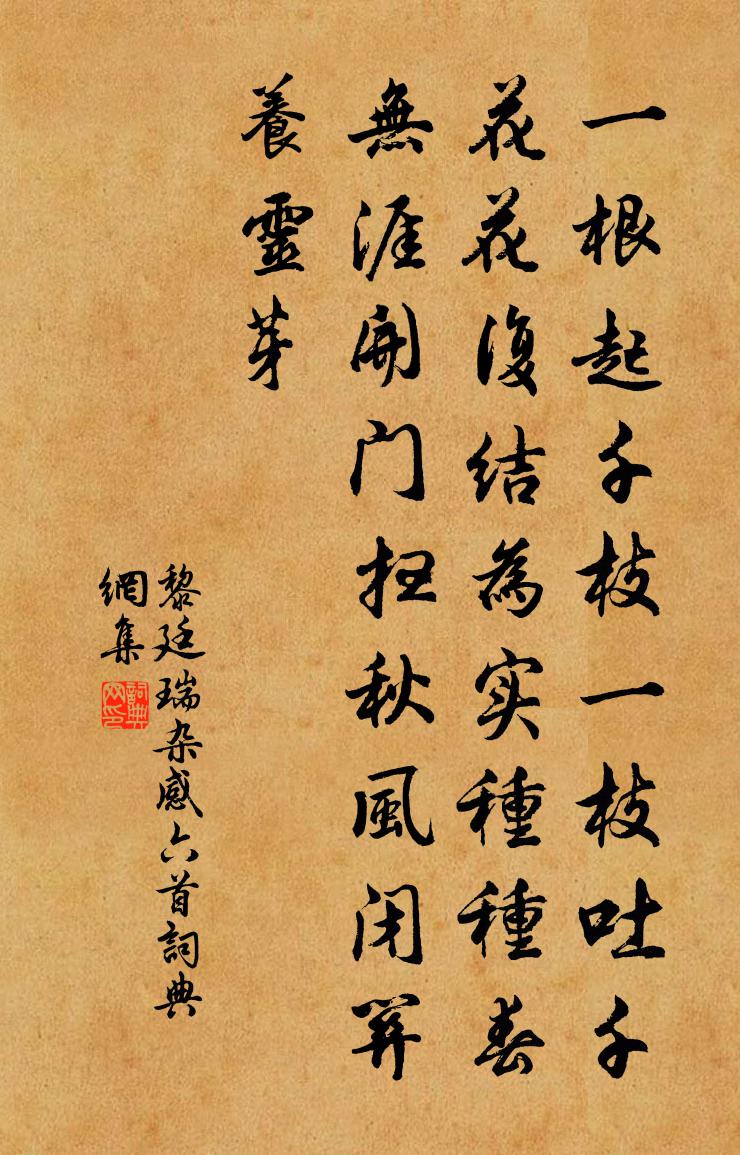 一根起千枝一枝吐千
花花復结為实種種春
無涯開门扫秋風闭關
養靈芽
黎廷瑞杂感六首詞典
網集
詞典
网印